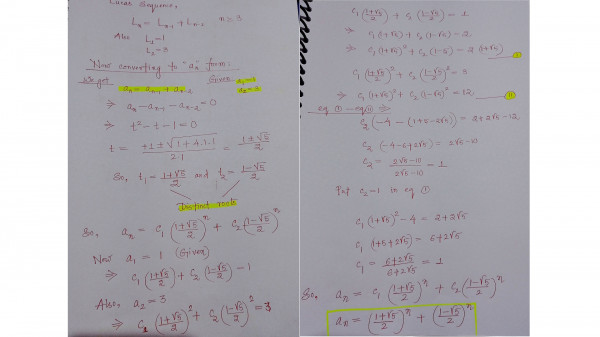 Lucas Sequence,
Lₙ = Lₙ₋₁ + Lₙ₋₂ n≥3
Also L₁=1
L₂=3
Now converting to "aₙ" form:
We get Given a₁=1
a₂=3
aₙ = aₙ₋₁ + aₙ₋₂
⇒ aₙ - aₙ₋₁ - aₙ₋₂ = 0
⇒ t² - t - 1 = 0
t = (+1 ± √(1+4.1.1))/(2.1) = (1±√5)/2
So, t₁ = (1+√5)/2 and t₂ = (1-√5)/2
Distinct roots
So, aₙ = c₁ ((1+√5)/2)ⁿ + c₂ ((1-√5)/2)ⁿ
Now a₁ = 1 (Given)
⇒ c₁ ((1+√5)/2) + c₂ ((1-√5)/2) = 1
Also, a₂ = 3
⇒ c₁ ((1+√5)/2)² + c₂ ((1-√5)/2)² = 3
c₁ ((1+√5)/2) + c₂ ((1-√5)/2) = 1
⇒ c₁ (1+√5) + c₂ (1-√5) = 2
⇒ c₁ (1+√5)² + c₂ (1-5) = 2 (1+√5) — Ⓘ
c₁ ((1+√5)/2)² + c₂ ((1-√5)/2)² = 3
⇒ c₁ (1+√5)² + c₂ (1-√5)² = 12 — Ⓘ Ⓘ
eq Ⓘ - eq Ⓘ Ⓘ ⇒
c₂ (-4 - (1+5-2√5)) = 2+2√5-12
c₂ (-4-6+2√5) = 2√5-10
c₂ = (2√5-10)/(2√5-10) = 1
Put c₂=1 in eq Ⓘ
c₁ (1+√5)² - 4 = 2+2√5
c₁ (1+5+2√5) = 6+2√5
c₁ = (6+2√5)/(6+2√5) = 1
So, aₙ = c₁ ((1+√5)/2)ⁿ + c₂ ((1-√5)/2)ⁿ
aₙ = ((1+√5)/2)ⁿ + ((1-√5)/2)ⁿ